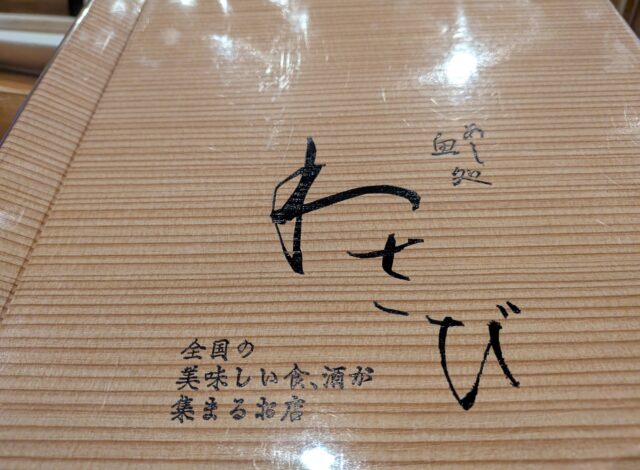 めし処
わさび
全国の
美味しい食、酒が
集まるお店